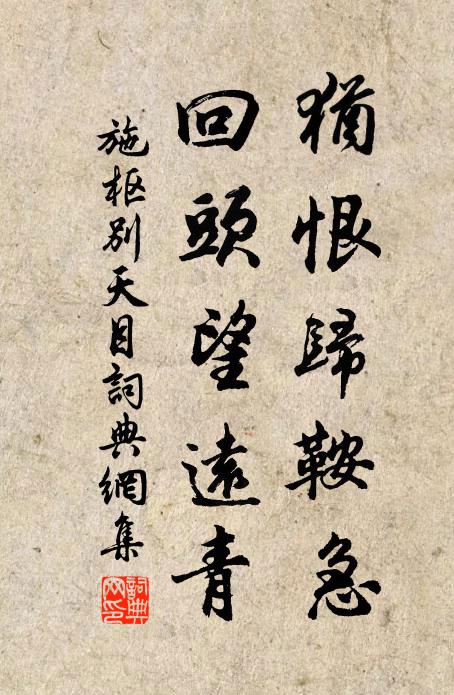 猶恨歸鞍急
回頭望遠青
施枢别天目詞典網集
詞典網印